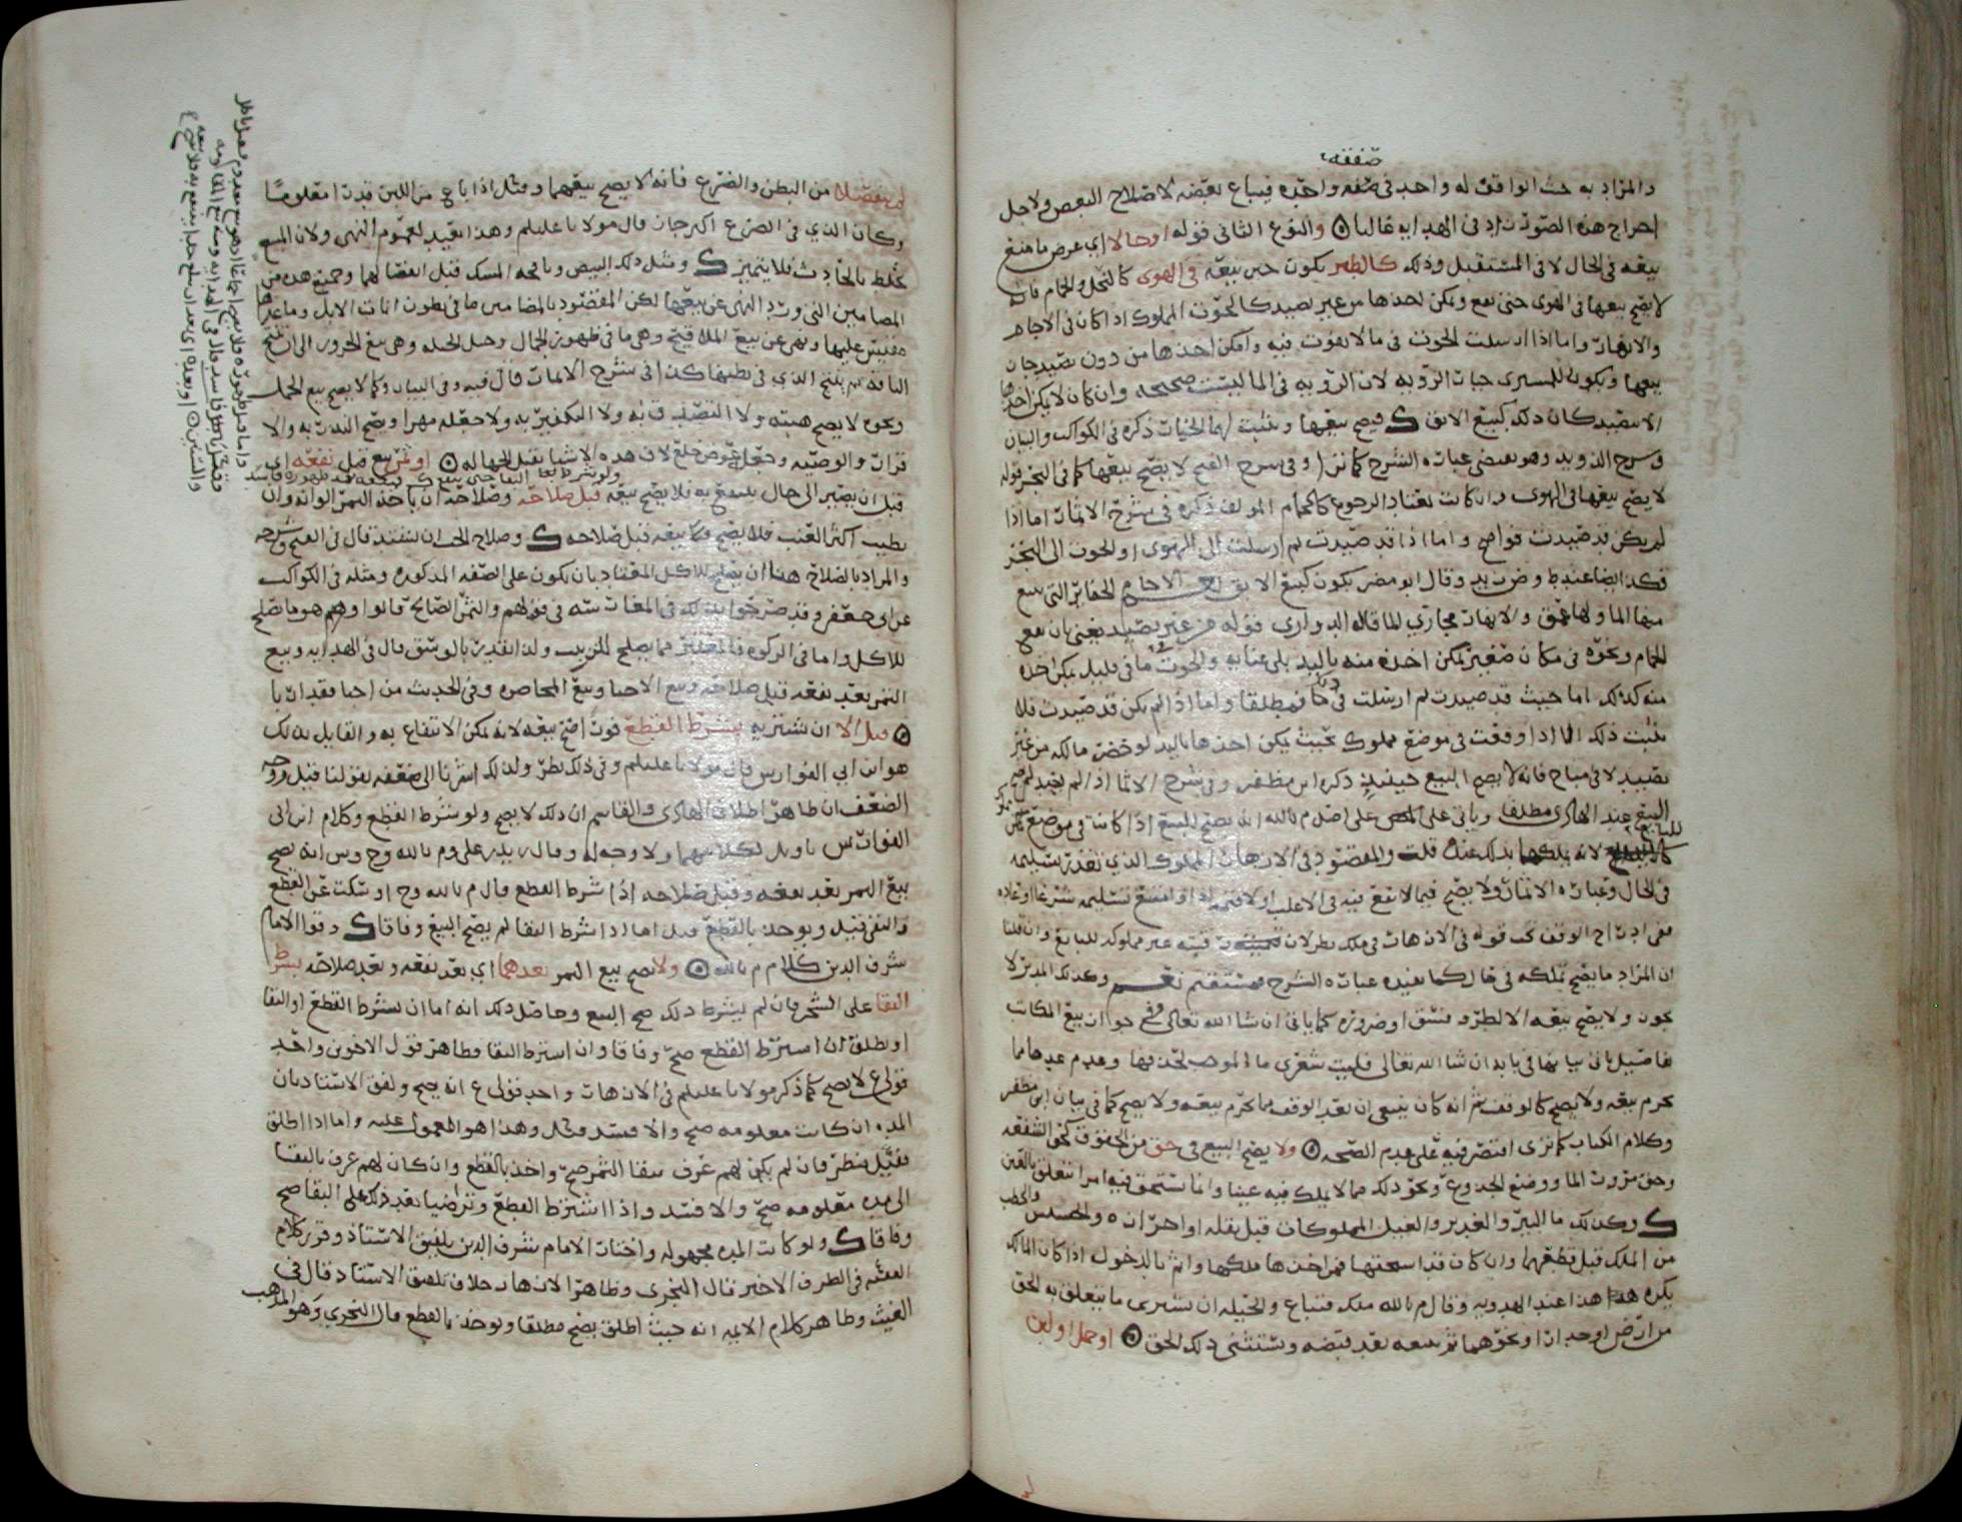 صفقه
والمراد به حيث الواقف له واحد في صفقه واحده فيباع بعضه لاصلاح البعض ولاجل
اخراج هذه الصورة زاد في الهدايه غالبا والنوع الثاني قوله اوحالا اي عرض ما منع
بيعه في الحال لا في المستقبل وذلك كالطير يكون حين بيعه في الهوى كالنحل والحمام فانه
لا يصح بيعها في الهوى حتى تقع ويمكن اخذها من غير تصيد كالحوت المملوك اذا كان في الاجام
والانهار واما اذا ارسلت الحوت في ما لا يفوت فيه وامكن اخذها من دون تصيد جاز
بيعها ويكون للمشتري خيار الرويه لان الرويه في الما ليست صحيحه وان كان لا يمكن اخذها
الا بتصيد كان ذلك كبيع الابق فيصح بيعها ويثبت لهما الخيار ذكره في الكواكب والبيان
وشرح الذويد وهو مقتضى عباره الشرح كما ترا وفي شرح الفتح لا يصح بيعها كما في البحر قوله
لا يصح بيعها في الهوى وان كانت تعتاد الرجوع كالحمام المولف ذكره في شرح الاثمار اما اذا
لم يكن قد صيدت فواضح واما اذا قد صيدت ثم ارسلت الى الهوى او الحوت الى البحر
فكذا ايضا عند ط وض زيد وقال ابو مضر يكون كبيع الابق الاجام الحفاير التي ينبع
منها الما ولها عمق والانهار مجاري الما قاله الدواري قوله من غير تصيد يعني بان تقع
الحمام ونحوه في مكان صغير يمكن اخذه منه باليد بلى عنايه والحوت ما في قليل يمكن اخذه
منه كذلك اما حيث قد صيدت ثم ارسلت في ما فمطلقا واما اذا لم يكن قد صيدت فلا
يثبت ذلك الا اذا وقعت في موضع مملوك بحيث يمكن اخذها باليد لو حضر مالكه من غير
تصييد لا في مباح فانه لا يصح البيع حينئذ ذكره ابن مظفر وفي شرح الاثمار
البيع عند الهادي مطلقا وياتي على اصل م بالله انه يصح البيع اذا كانت في موضع
للبايع لانه يملكها بذلك عنده قلت والمقصود في الازهار المملوك الذي تعذر تسليمه
في الحال وعباره الاثمار ولا يصح فيما لا نفع فيه في الاغلب او لا قيمه له او امتنع تسليمه شرعا او عاده
ففي ادراج الوقف تحت قوله في الازهار في ملك نظر لان رقبته غير مملوكه للبايع وان قلنا
ان المراد ما يصح تملكه في حال كما تفيده عباره الشرح فمستقيم نعم وكذلك المدبر لا
يجوز ولا يصح بيعه الا لطرو فسق او ضروره كما ياتي ان شا الله تعالى وفي جواز بيع المكاتب
تفاصيل ياتي بيانها في بابه ان شا الله تعالى فليت شعري ما الموجب لحذفها وعدم عدها مما
يحرم بيعه ولا يصح كالوقف ثم انه كان ينبغي ان يعد الوقف مما يحرم بيعه ولا يصح كما في بيان ابن مظفر
وكلام الكتاب كما ترى اقتصر فيه على عدم الصحه ولا يصح البيع في حق من الحقوق كحق الشفعه
وحق مرور الما ووضع الجذوع ونحو ذلك مما لا يملك فيه عينا وانما يستحق فيه امرا يتعلق بالعين
وكذلك ما البير والغدير والغيل المملوكات قبل نقله او احرازه والحشيش والحطب
من الملك قبل قطعهما وان كان قد استحقها فمن اخذها ملكها واثم بالدخول اذا كان المالك
يكره هذا هذا عند الهدويه وقال م بالله ملك فتباع والحيله ان يشتري ما يتعلق به الحق
من ارض او جدار او نحوهما ثم يبيعه بعد قبضه ويستثني ذلك الحق او حمل او لبن
لم ينفصلا من البطن والضرع فانه لا يصح بيعهما ومثل اذا باع من اللبن قدرا معلوما
وكان الذي في الضرع اكثر جاز قال مولانا عليلم وهذا بعيد لعموم النهي ولان المبيع
يختلط بالحادث فلا يتميز ومثل ذلك البيض ونافجه المسك قبل انفصالهما وجميع هذه من
المضامين التي ورد النهي عن بيعها لكن المقصود بالمضامين ما في بطون اناث الابل وما عداها
مقيس عليها ونهي عن بيع الملاقيح وهي ما في ظهور الجمال وحبل الحبله وهي بيع الجزور الى ان تنتج
الناقه ثم ينتج الذي في بطنها كذا في شرح الاثمار قال فيه وفي البيان وكما لا يصح بيع الحمل
ونحوه لا يصح هبته ولا التصدق به ولا التكفير به ولا جعله مهرا ويصح النذر به والا
قرار والوصيه وجعله عوض خلع لان هذه الاشيا تقبل الجهاله او ثمر بيع قبل نفعه اي
قبل ان يصير الى حال ينتفع به فلا يصح بيعه قبل صلاحه وصلاحه ان ياخذ الثمر الوانه وان
يطيب اكثر العنب فلا يصح بيعه قبل صلاحه وصلاح الحب ان يشتد قال في الفتح وشرحه
والمراد بالصلاح هنا ان يصلح للاكل المعتاد بان يكون على الصفه المذكوره ومثله في الكواكب
عن ابي جعفر وقد صرحوا بذلك في المغارسه في قولهم والثمر الصالح قالوا وهو ما صلح
للاكل واما في الزكوه فالمعتبر مما يصلح للزبيب ولذا تقدير بالوسق قال في الهدايه وبيع
الثمر بعد نفعه قبل صلاحه وبيع الاحبا وبيع المخاصره وفي الحديث من احبا فقد اربا
قيل الا ان يشتريه بشرط القطع فورا صح بيعه لانه يمكن الانتفاع به والقايل بذلك
هو ابن ابي الفوارس قال مولانا عليلم وفي ذلك نظر ولذلك اشرنا الى ضعفه بقولنا قيل ووجه
الضعف ان ظاهر اطلاق الهادي والقاسم ان ذلك لا يصح ولو شرط القطع وكلام ابن ابي
الفوارس تاويل لكلاميهما ولا وجه له وقال زيد بن علي وم بالله وح وش انه يصح
بيع الثمر بعد نفعه وقبل صلاحه اذا شرط القطع قال م بالله وح او سكت عن القطع
والتبقيه ويوخذ بالقطع قيل اما اذا شرط البقا لم يصح البيع وفاقا وقوا الامام
شرف الدين كلام م بالله ولا يصح بيع الثمر بعدهما اي بعد نفعه وبعد صلاحه بشرط
البقا على الشجر فان لم يشرط ذلك صح البيع وحاصل ذلك انه اما ان يشرط القطع او البقا
او يطلق ان اشترط القطع صح وفاقا وان اشترط البقا فظاهر قول الاخوين واحد
قولي ع لا يصح كما ذكر مولانا عليلم في الازهار واحد قولي ع انه يصح ولفق الاستاد بان
المده ان كانت معلومه صح والا فسد ومثل وهذا هو المعمول عليه واما اذا اطلق
فقيل ينظر فان لم يكن لهم عرف ببقا الثمر صح واخذ بالقطع وان كان لهم عرف بالبقا
الى مده معلومه صح والا فسد واذا اشترط القطع وتراضيا بعد ذلك على البقا صح
وفاقا ولو كانت المده مجهوله واختار الامام شرف الدين تلفيق الاستاذ وقرر كلام
الفقيه في الطرف الاخير قال النجري وظاهر الازهار خلاف تلفيق الاستاد قال في
الغيث وظاهر كلام الايمه انه حيث اطلق يصح مطلقا ويوخذ بالقطع قال النجري وهو المذهب